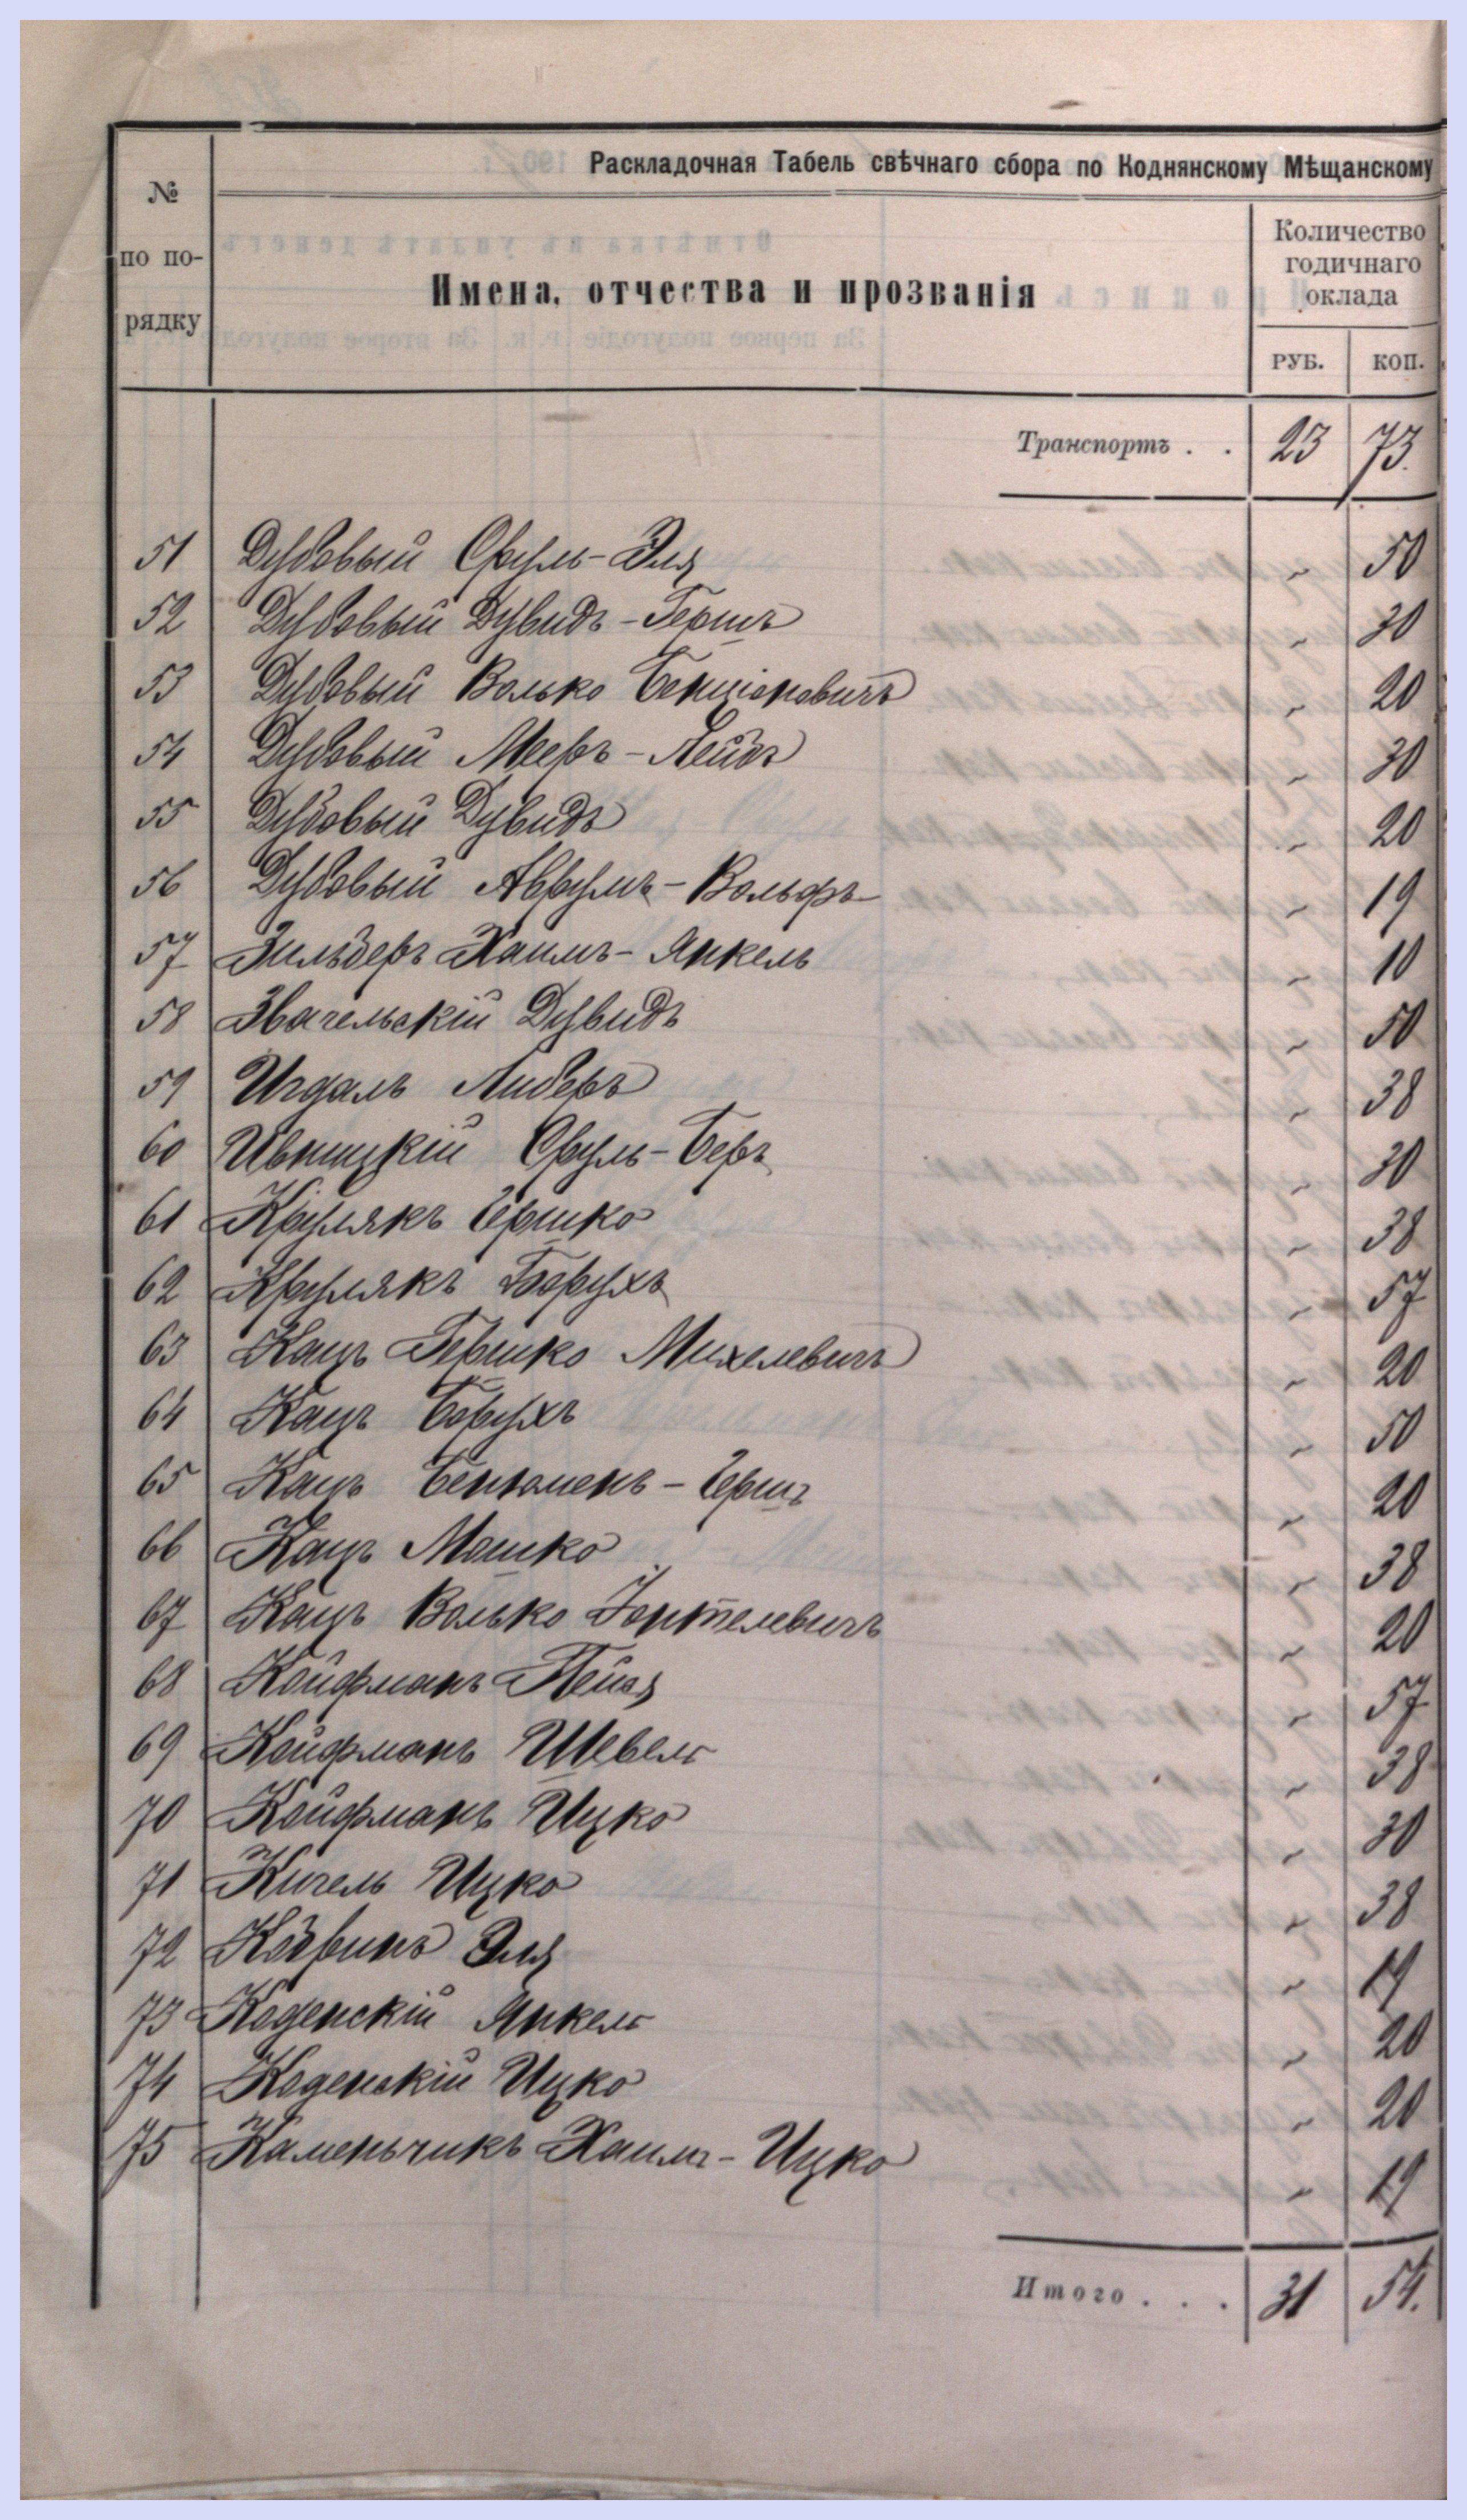 Раскладочная Табель свѣчнаго сбора по Коднянскому Мѣщанскому
№
по по-
рядку
Имена, отчества и прозванія
Количество
годичнаго
оклада
РУБ. КОП.
Транспортъ . . 23 73.
51 Дубовый Сруль-Эля „ 50
52 Дубовый Дувидъ-Гершъ „ 30
53 Дубовый Волько Бенціоновичъ „ 20
54 Дубовый Мееръ-Лейбъ „ 30
55 Дубовый Дувидъ „ 20
56 Дубовый Аврумъ-Вольфъ „ 19
57 Зильберъ Хаимъ-Янкель „ 10
58 Звягельскій Дувидъ „ 50
59 Игдалъ Либеръ „ 38
60 Ивницкій Сруль-Беръ „ 30
61 Крулякъ Гершко „ 38
62 Крулякъ Борухъ „ 57
63 Кацъ Гершко Михелевичъ „ 20
64 Кацъ Борухъ „ 50
65 Кацъ Беньюменъ-Гершъ „ 20
66 Кацъ Мошко „ 38
67 Кацъ Волько „ 20
68 Койфманъ Пейся „ 57
69 Койфманъ Шевель „ 38
70 Койфманъ Ицко „ 30
71 Кигель Ицко „ 38
72 Эля „ 19
73 Коденскій Янкель „ 20
74 Коденскій Ицко „ 20
75 Каменьчикъ Хаимъ-Ицко „ 19
Итого . . . 31 54.